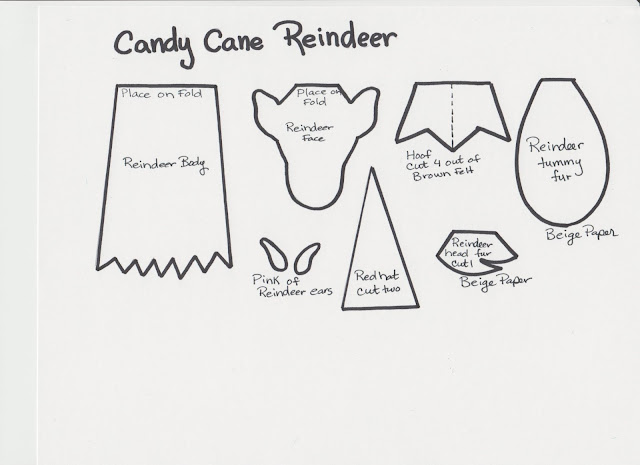 Candy Cane Reindeer
Place on Fold
Reindeer Body
Place on
Fold
Reindeer
Face
Hoof
Cut 4 out of
Brown Felt
Reindeer
tummy
fur
Beige Paper
Pink of
Reindeer ears
Red hat
cut two
Reindeer
head fur
cut 1
Beige Paper